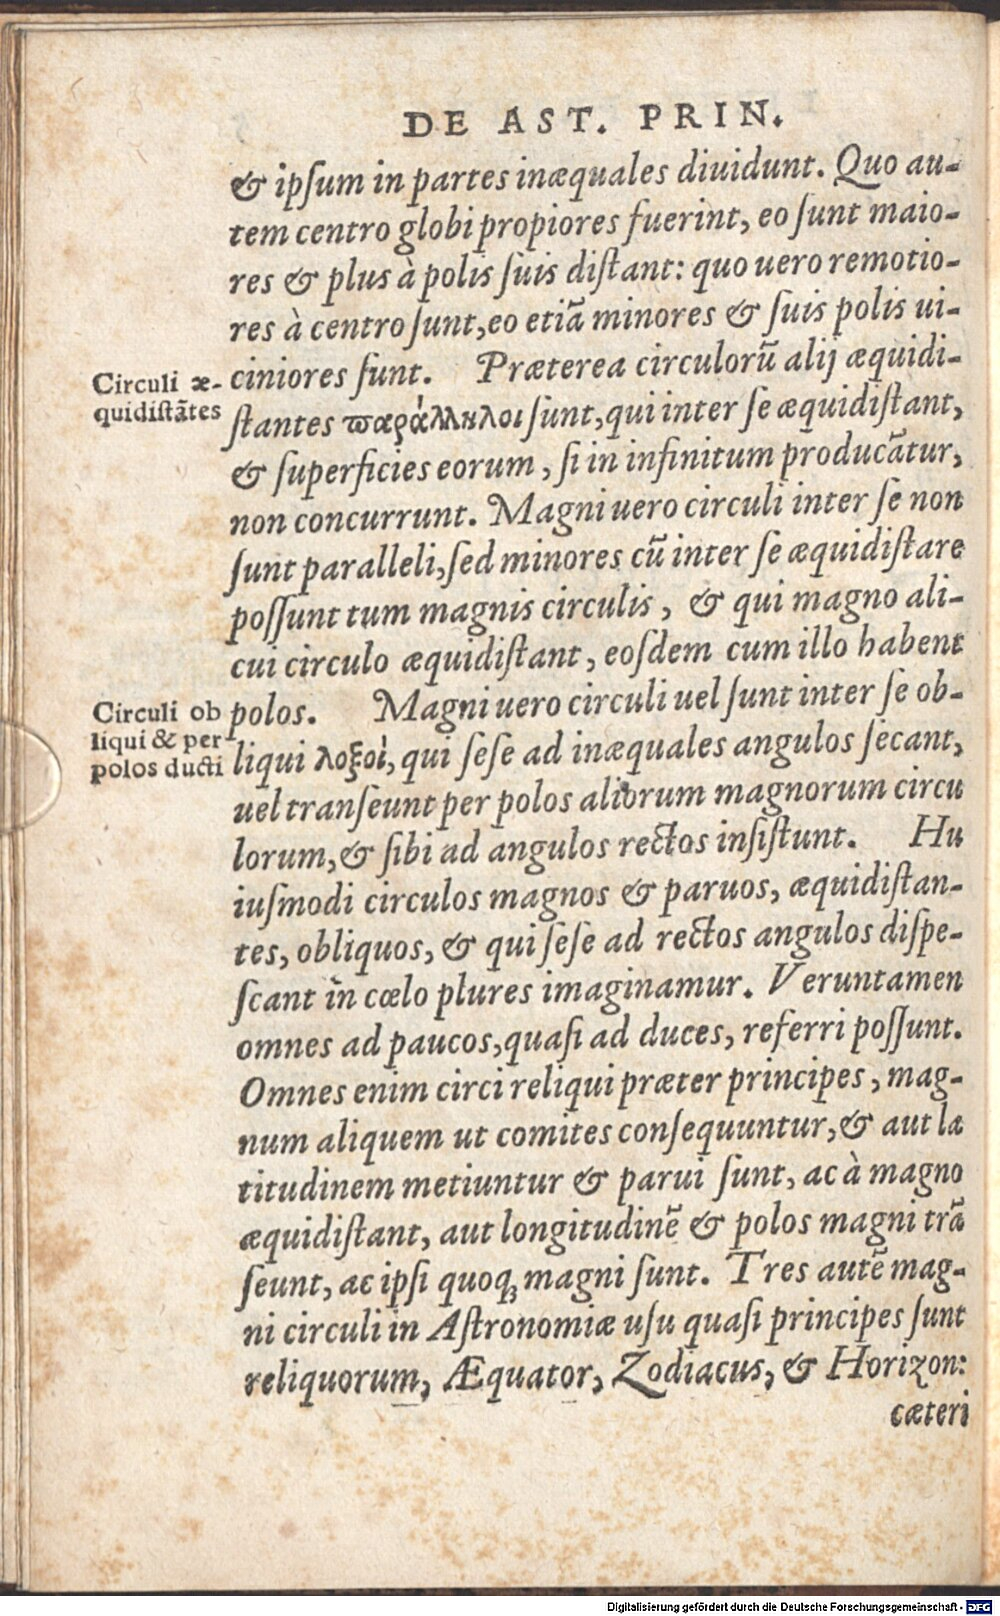 DE AST. PRIN.
& ipſum in partes inæquales diuidunt. Quo au-
tem centro globi propiores fuerint, eo ſunt maio-
res & plus à polis ſuis diſtant: quo uero remotio-
res à centro ſunt, eo etiã minores & ſuis polis ui-
ciniores ſunt. Præterea circulorũ alij æquidi-
Circuli æ-
quidiſtãtes
ſtantes ϖαράλληλοι ſunt, qui inter ſe æquidiſtant,
& ſuperficies eorum, ſi in infinitum producãtur,
non concurrunt. Magni uero circuli inter ſe non
ſunt paralleli, ſed minores cũ inter ſe æquidiſtare
poſſunt tum magnis circulis, & qui magno ali-
cui circulo æquidiſtant, eoſdem cum illo habent
polos. Magni uero circuli uel ſunt inter ſe ob-
Circuli ob
liqui & per
polos ducti
liqui λοξοὶ, qui ſeſe ad inæquales angulos ſecant,
uel tranſeunt per polos aliorum magnorum circu
lorum, & ſibi ad angulos rectos inſiſtunt. Hu
iuſmodi circulos magnos & paruos, æquidiſtan-
tes, obliquos, & qui ſeſe ad rectos angulos diſpe-
ſcant in cœlo plures imaginamur. Veruntamen
omnes ad paucos, quaſi ad duces, referri poſſunt.
Omnes enim circi reliqui præter principes, mag-
num aliquem ut comites conſequuntur, & aut la
titudinem metiuntur & parui ſunt, ac à magno
æquidiſtant, aut longitudinẽ & polos magni trã
ſeunt, ac ipſi quoq; magni ſunt. Tres autẽ mag-
ni circuli in Aſtronomiæ uſu quaſi principes ſunt
reliquorum, Æquator, Zodiacus, & Horizon:
cæteri
Digitalisierung gefördert durch die Deutsche Forschungsgemeinschaft - DFG